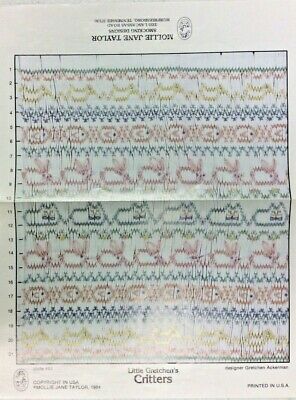 MOLLIE JANE TAYLOR
SMOCKING DESIGNS
MURFREESBORO, TENNESSEE 37130
1
2
3
4
5
6
7
8
9
10
11
12
13
14
15
16
17
18
19
20
21
Little Gretchen's
Critters
designer Gretchen Ackerman
COPYRIGHT IN USA
©MOLLIE JANE TAYLOR, 1984
PRINTED IN U.S.A.